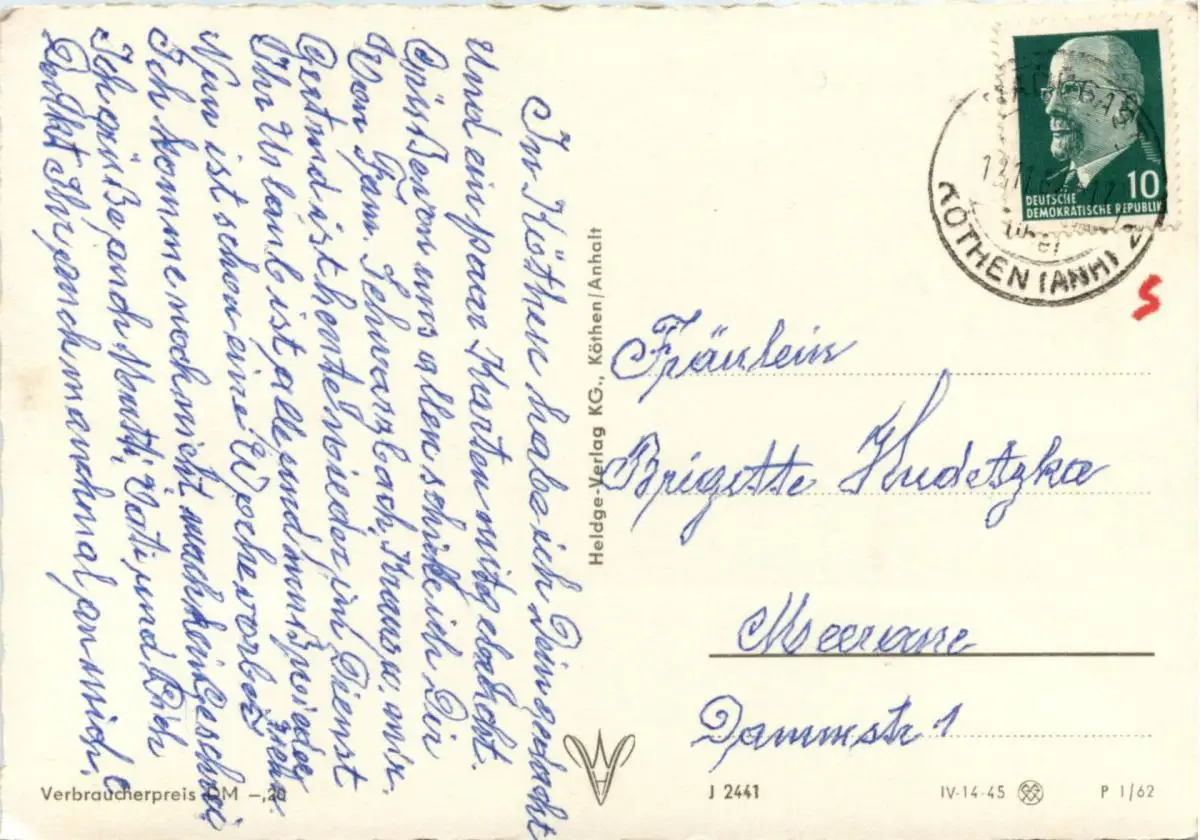 In Köthen habe ich Dein gedacht
Und ein paar Karten mitgebracht.
Grüße von uns allen schicke ich Dir
Von Fam. Schwarzbach, Kraus u. mir.
Gertrud ist heute wieder im Dienst
Ihr Urlaub ist alle und muß wieder ziehn.
Nun ist schon eine Woche vorbei
Ich komme noch nicht, mach kein Geschrei
Ich grüße auch Mutti, Vati und Dich
Denkt Ihr auch manchmal an mich.
Verbraucherpreis DM –,20
Heldge-Verlag KG., Köthen/Anhalt
10
DEUTSCHE
DEMOKRATISCHE REPUBLIK
KÖTHEN (ANH) 2
5
Fräulein
Brigette Hudetzka
Meerane
Dammstr 1
J 2441
IV-14-45
P 1/62